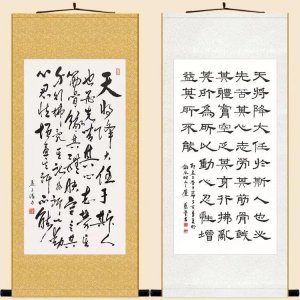 天將降大任於斯人也必
先苦其心志勞其筋骨餓
其體膚空乏其身行拂亂
其所為所以動心忍性增
益其所不能
天將降大任于斯人
也必先苦其心志勞其
筋骨餓其體膚空乏其
身行拂亂其所為所以動
心忍性增益其所不能